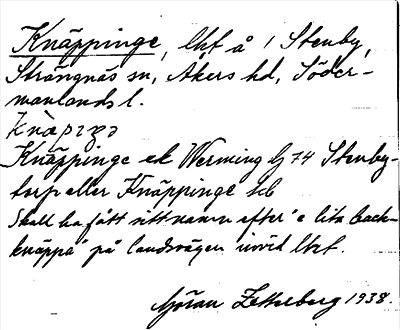 Knäppinge, lht å 1 Stenby,
Strängnäs sn, Åkers hd, Söder-
manlands l.
Knäppinge ek Werming bj 74 Stenby-
torp eller Knäppinge
Skall ha fått sitt namn efter "e lita back-
knäppa" på landsvägen invid lht.
Göran Zetterberg 1938.